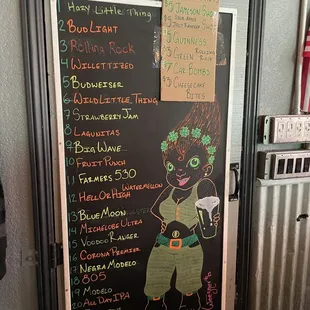 Hazy Little Thing
2 Bud Light
3 Rolling Rock
4 Willettized
5 Budweiser
6 Wild Little Thing
7 Strawberry Jam
8 Lagunitas
9 Big Wave
10 Fruit Punch
11 Farmers 530
12 Hell Or High Watermelon
13 Blue Moon
14 Michelobe Ultra
15 Voodoo Ranger
16 Corona Premier
17 Negra Modelo
18 805
19 Modelo
20 All Day IPA
$5 Jameson
$5 Guinness
$5 Green
$7 Car Bombs
Cheesecake
Bites